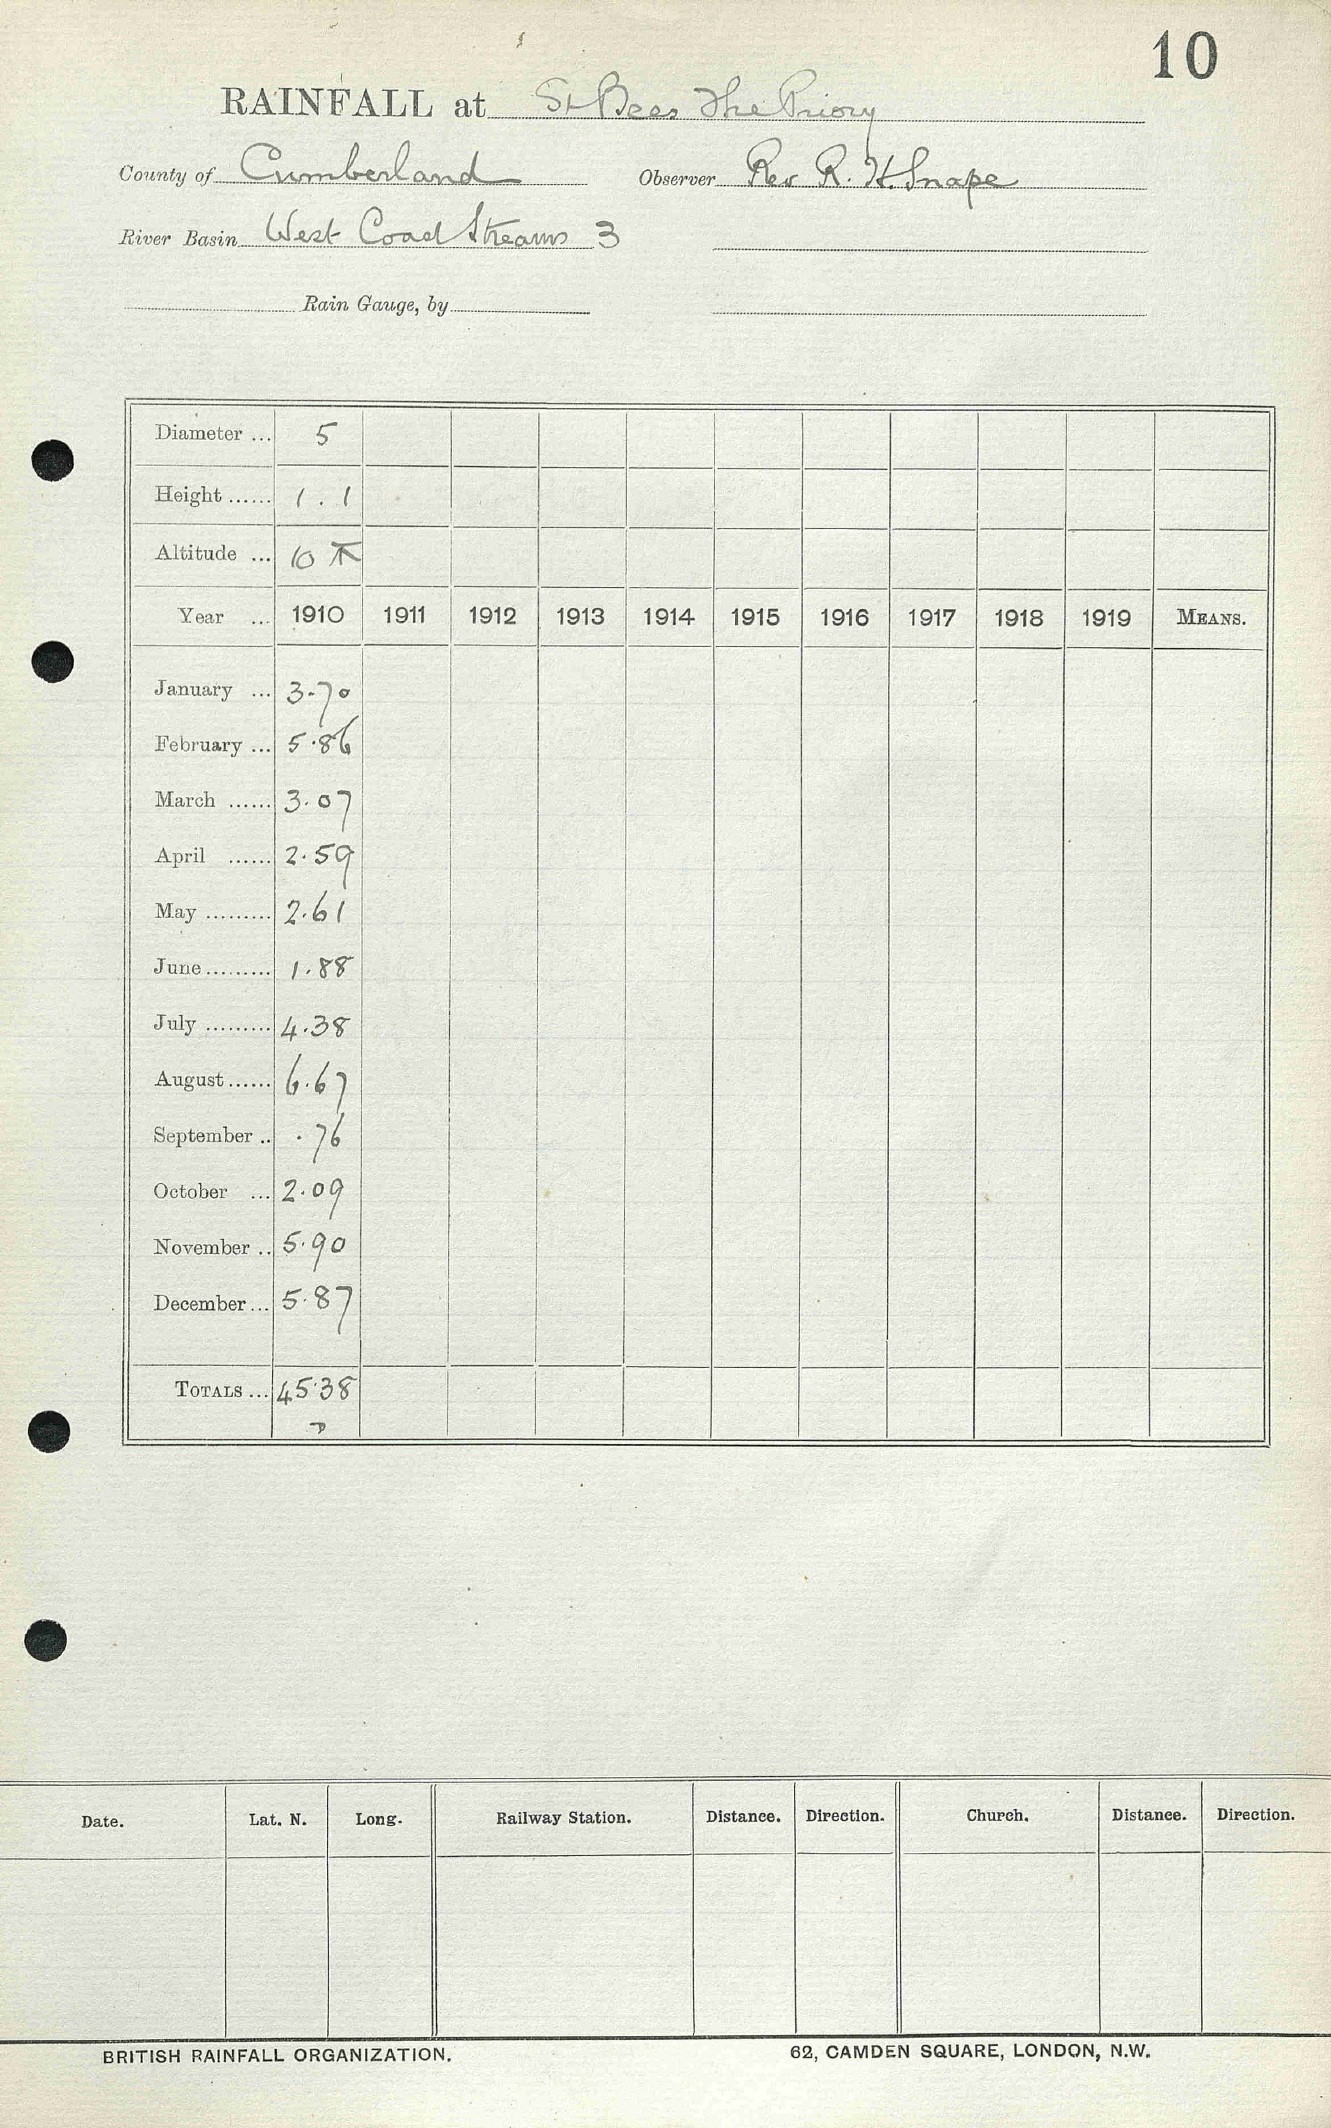 10
RAINFALL at St Bees The Priory
County of Cumberland Observer Rev R. H. Snape
River Basin West Coast Streams 3
Rain Gauge, by
Diameter ... 5
Height ...... 1 . 1
Altitude ... 10
Year ... 1910 1911 1912 1913 1914 1915 1916 1917 1918 1919 MEANS.
January ... 3.70
February ... 5.86
March ...... 3.07
April ...... 2.59
May ......... 2.61
June ......... 1.88
July ......... 4.38
August ...... 6.67
September .. .76
October ... 2.09
November .. 5.90
December ... 5.87
TOTALS ... 45.38
Date. Lat. N. Long. Railway Station. Distance. Direction. Church. Distance. Direction.
BRITISH RAINFALL ORGANIZATION. 62, CAMDEN SQUARE, LONDON, N.W.